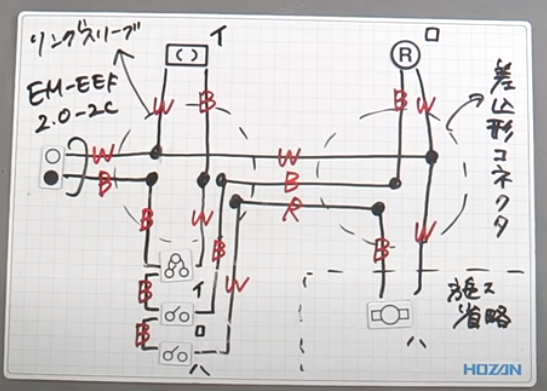 リングスリーブ
イ
ロ
EM-EEF
2.0-2C
R
差込形コネクタ
W
B
B
W
W
W
B
B
B
W
R
B
W
B
W
B
B
イ
ロ
ハ
ハ
施工省略
HOZAN